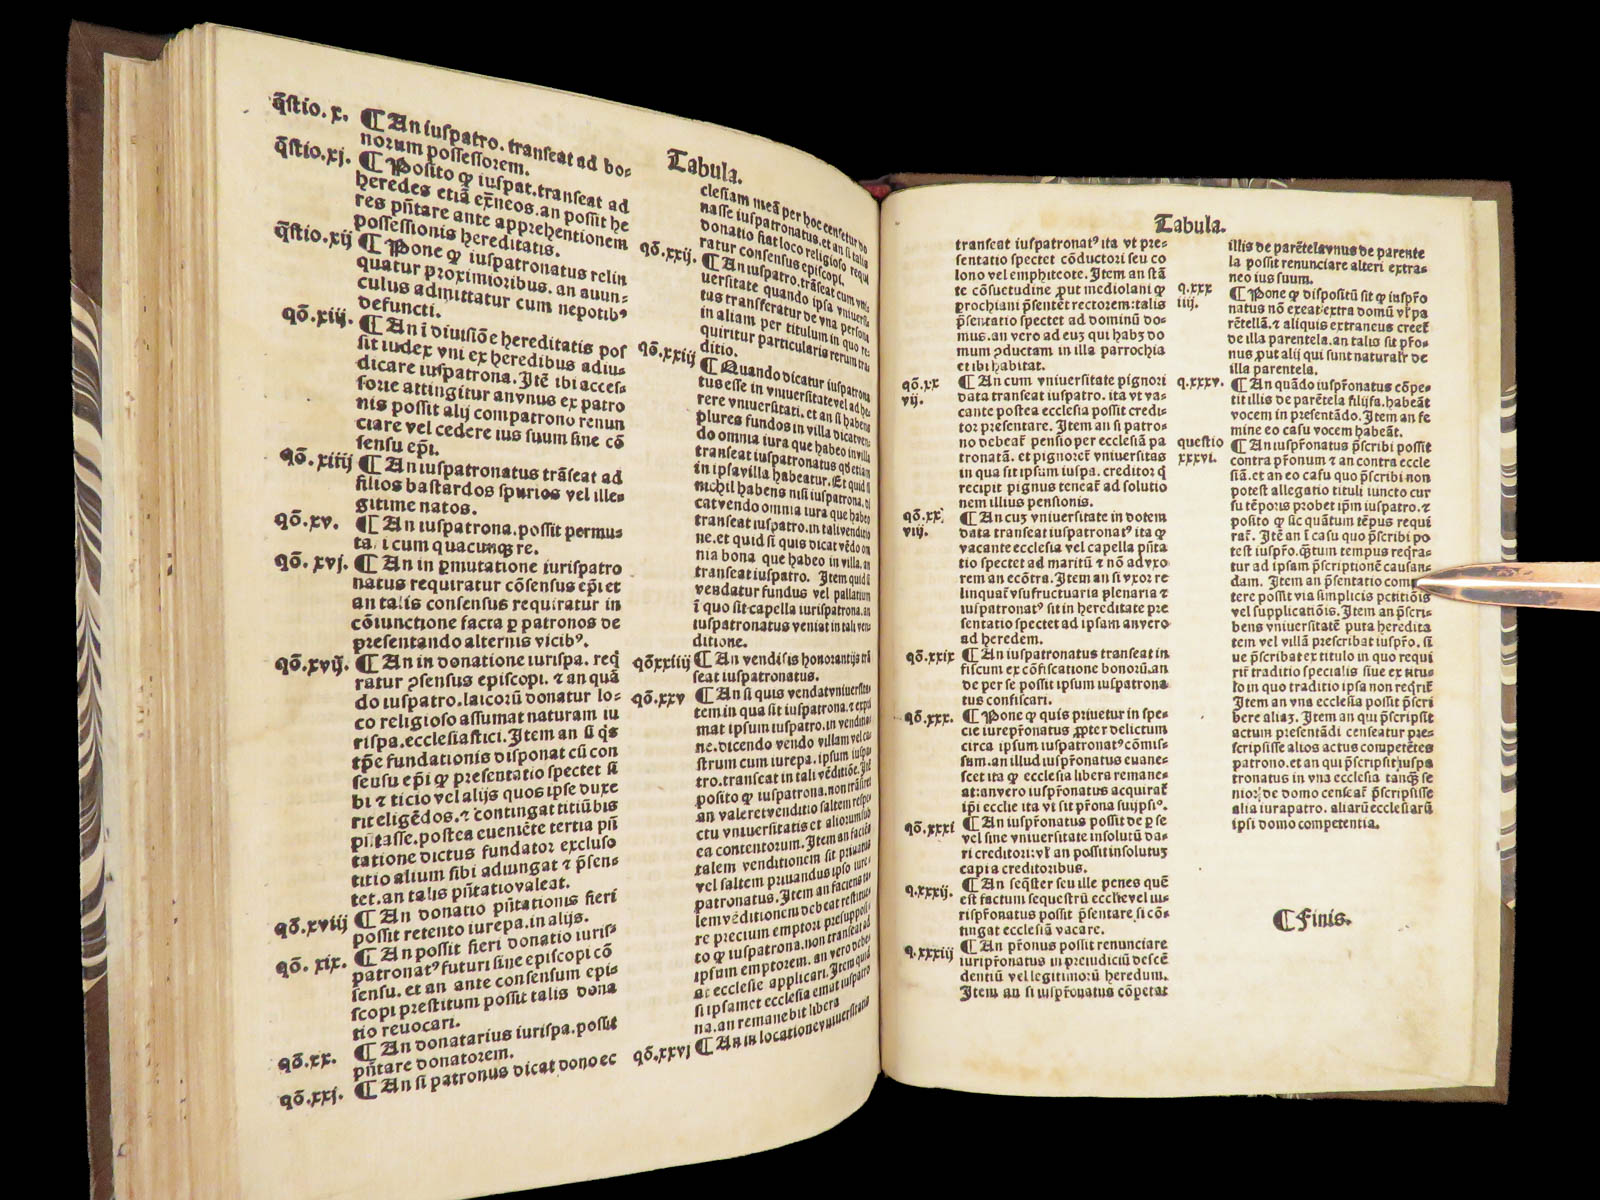 Tabula.
q̄stio. x. ¶ An iuſpatro. tranſeat ad bo-
norum poſſeſſorem.
q̄stio. xj. ¶ Poſito ꝙ iuſpat. tranſeat ad
heredes etiā exñeos. an poſſit he
res pñtare ante apprehentionem
poſſeſſionis hereditatis.
q̄stio. xij ¶ Pone ꝙ iuſpatronatus relin
quatur proximioribus. an auun-
culus admittatur cum nepotibꝰ
defuncti.
qō. xiij. ¶ An ī diuiſiōe hereditatis poſ
ſit iudex vni ex heredibus adiu-
dicare iuſpatrona. Itē ibi acceſ-
ſorie attingitur an vnus ex patro
nis poſſit alij compatrono renun
ciare vel cedere ius ſuum ſine cō
ſenſu ep̄i.
qō. xiiij ¶ An iuſpatronatus trāſeat ad
filios baſtardos ſpurios vel ille-
gitime natos.
qō. xv. ¶ An iuſpatrona. poſſit permu-
ta. i cum quacunqꝫ re.
qō. xvj. ¶ An in ꝑmutatione iuriſpatro
natus requiratur cōſenſus ep̄i et
an talis conſenſus requiratur in
cōiunctione facta ꝑ patronos de
preſentando alternis vicibꝰ.
qō. xvij. ¶ An in donatione iuriſpa. req̄
ratur ꝯſenſus epiſcopi. ⁊ an quā
do iuſpatro. laicorū donatur lo-
co religioſo aſſumat naturam iu
riſpa. eccleſiaſtici. Item an ſi q̄s
tꝑe fundationis diſponat cū con
ſenſu ep̄i ꝙ preſentatio ſpectet ſi
bi ⁊ ticio vel alijs quos ipſe duxe
rit eligēdos. ⁊ contingat titiū bis
pñtaſſe. poſtea eueniēte tertia pñ
tatione dictus fundator excluſo
titio alium ſibi adiungat ⁊ p̄ſen-
tet. an talis pñtatio valeat.
qō. xviij ¶ An donatio pñtationis fieri
poſſit retento iurepa. in alijs.
qō. xix. ¶ An poſſit fieri donatio iuriſ-
patronatꝰ futuri ſine epiſcopi cō
ſenſu. et an ante conſenſum epi-
ſcopi preſtitum poſſit talis dona
tio reuocari.
qō. xx. ¶ An donatarius iuriſpa. poſſit
pñtare donatorem.
qō. xxj. ¶ An ſi patronus dicat dono ec
cleſiam meā per hoc cenſetur do
naſſe iuſpatronatus. et an ſi talis
donatio fiat loco religioſo requi
ratur conſenſus epiſcopi.
qō. xxij. ¶ An iuſpatro. trāſeat cum vni-
uerſitate quando ipſa vniuerſi-
tas transferatur de vna perſona
in aliam per titulum in quo re-
quiritur particularis rerum tra
ditio.
qō. xxiij ¶ Quando dicatur iuſpatrona
tus eſſe in vniuerſitate vel adhe-
rere vniuerſitati. et an ſi habens
plures fundos in villa dicat ven-
do omnia iura que habeo in villa
tranſeat iuſpatronatus qd̄ etiam
in ipſa villa habeatur. Et quid ſi
nichil habens niſi iuſpatrona. di
cat vendo omnia iura que habeo
tranſeat iuſpatro. in tali venditio
ne. et quid ſi quis dicat vēdo om
nia bona que habeo in villa. an
tranſeat iuſpatro. Item quid ſi
vendatur fundus vel pallatium
ī quo ſit capella iuriſpatrona. an
iuſpatronatus veniat in tali ven-
ditione.
qō xxiiij ¶ An vendisis honorantijs trā
ſeat iuſpatronatus.
qō. xxv ¶ An ſi quis vendat vniuerſita-
tem in qua ſit iuſpatrona. ⁊ expri
mat ipſum iuſpatro. in venditio
ne. dicendo vendo villam vel ca-
ſtrum cum iurepa. ipſum iuſpa-
tro. tranſeat in tali vēditiōe. Itē
poſito ꝙ iuſpatrona. non trāſiret
an valeret venditio ſaltem reſpe-
ctu vniuerſitatis et aliorum ſub
ea contentorum. Item an faciēs
talem venditionem ſit priuatus
vel ſaltem priuandus ipſo iure
patronatus. Item an faciens ta-
lem vēditionem debeat reſtitue-
re precium emptori preſuppoſi-
to ꝙ iuſpatrona. non tranſeat ad
ipſum emptorem. an vero debeat
ecclesie applicari. Item quid
ſi ipſamet eccleſia emat iuſpatro
na. an remanebit libera
qō. xxvj ¶ An in locatione vniuerſitatis
Tabula.
tranſeat iuſpatronatꝰ ita vt pre-
ſentatio ſpectet cōductori ſeu co
lono vel emphiteote. Item an ſtā
te cōſuetudine ꝓut mediolani ꝙ
ꝑrochiani p̄ſentēt rectorem: talis
p̄ſentatio ſpectet ad dominū do-
mus. an vero ad euꝫ qui habꝫ do
mum ꝯductam in illa parrochia
et ibi habitat.
qō. xx
vij. ¶ An cum vniuerſitate pignori
data tranſeat iuſpatro. ita vt va-
cante poſtea eccleſia poſſit credi-
tor preſentare. Item an ſi patro-
no debeat̄ penſio per eccleſiā pa
tronatā. et pignoret̄ vniuerſitas
in qua ſit ipſum iuſpa. creditor q̄
recipit pignus teneat̄ ad ſolutio
nem illius penſionis.
qō. xx
viij. ¶ An cuꝫ vniuerſitate in dotem
data tranſeat iuſpatronatꝰ ita ꝙ
vacante eccleſia vel capella pñta
tio ſpectet ad maritū ⁊ nō ad vxo
rem an ecōtra. Item an ſi vxor re
linquat̄ vſufructuaria plenaria ⁊
iuſpatronatꝰ ſit in hereditate pre
ſentatio ſpectet ad ipſam an vero
ad heredem.
qō. xxix ¶ An iuſpatronatus tranſeat in
fiſcum ex cōfiſcatione bonorū. an
de per ſe poſſit ipſum iuſpatrona
tus confiſcari.
qō. xxx. ¶ Pone ꝙ quis priuetur in ſpe-
cie iurepr̄onatus ꝓpter delictum
circa ipſum iuſpatronatꝰ cōmiſ-
ſum. an illud iuſpr̄onatus euane-
ſcet ita ꝙ eccleſia libera remane-
at: an vero iuſpr̄onatus acquirat̄
ip̄i ecclie ita vt ſit pr̄ona ſuijpſiꝰ.
qō. xxxi ¶ An iuſpr̄onatus poſſit de ꝑ ſe
vel ſine vniuerſitate inſolutū da-
ri creditori: vl̄ an poſſit inſolutuꝫ
capi a creditoribus.
q. xxxij. ¶ An ſeq̄ſter ſeu ille penes quē
eſt factum ſequeſtrū eccl̄ie vel iu-
riſpr̄onatus poſſit p̄ſentare ſi cō-
tingat eccleſiā vacare.
q. xxxiij ¶ An pr̄onus poſſit renunciare
iuripr̄onatus in preiudiciū deſcē
dentiū vel legitimorū heredum.
Item an ſi iuſpr̄onatus cōpetat
illis de parētela vnus de parente
la poſſit renunciare alteri extra-
neo ius ſuum.
q. xxx
iiij. ¶ Pone ꝙ diſpoſitū ſit ꝙ iuſpr̄o
natus nō exeat extra domū vl̄ pa
rētellā. ⁊ aliquis extraneus creet̄
de illa parentela. an talis ſit pr̄o-
nus ꝓut alij qui ſunt naturalr̄ de
illa parentela.
q. xxxv. ¶ An quādo iuſpr̄onatus cōpe-
tit illis de parētela filij fa. habeāt
vocem in preſentādo. Item an fe
mine eo caſu vocem habeāt.
queſtio
xxxvi. ¶ An iuſpr̄onatus p̄ſcribi poſſit
contra pr̄onum ⁊ an contra eccle
ſiā. et an eo caſu quo p̄ſcribi non
poteſt allegatio tituli iuncto cur
ſu tēporis probet ip̄m iuſpatro. ⁊
poſito ꝙ ſic quātum tēpus requi
rat̄. Itē an ī caſu quo p̄ſcribi po
teſt iuſpr̄o. q̄tum tempus reqr̄a-
tur ad ipſam p̄ſcriptionē cauſan-
dam. Item an p̄ſentatio
tere poſſit via ſimplicis petitiōis
vel ſupplicatiōis. Item an p̄ſcri-
bens vniuerſitatē puta heredita
tem vel villā preſcribat iuſpr̄o. ſi
ue p̄ſcribat ex titulo in quo requi
rit̄ traditio ſpecialis ſiue ex titu-
lo in quo traditio ipſa non reqr̄it̄
Item an vna eccleſia poſſit p̄ſcri
bere aliaꝫ. Item an qui p̄ſcripſit
actum preſentādi cenſeatur pre-
ſcripſiſſe alios actus competētes
patrono. et an qui p̄ſcripſit iuſpa
tronatus in vna eccleſia tanqꝫ ſe
nioꝝ de domo cenſeat̄ p̄ſcripſiſſe
alia iurapatro. aliarū eccleſiarū
ipſi domo competentia.
¶ Finis.